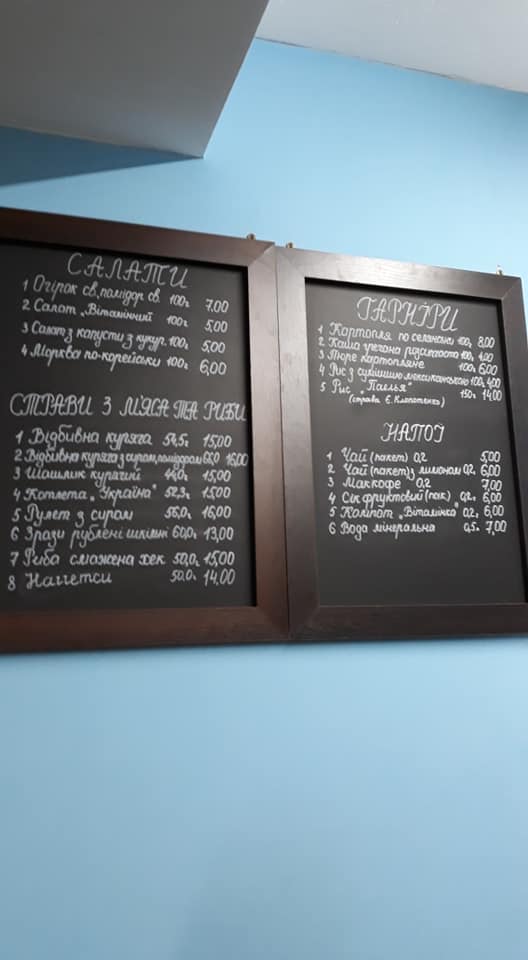 САЛАТИ
1 Огірок св, помідор св 100г 7.00
2 Салат „Вітамінний" 100г 5,00
3 Салат з капусти з кукур. 100г 5,00
4 Морква по-корейськи 100г 6,00
СТРАВИ З М'ЯСА ТА РИБИ
1 Відбивна куряча 54,5г 15,00
2 Відбивна куряча з сиром, помідором 16,00
3 Шашлик курячий 15,00
4 Котлета „Україна" 52,3г 15.00
5 Рулет з сиром 56,0г 16,00
6 Зрази рублені шкільні 60,0г 13,00
7 Риба смажена хек 50,0г 15,00
8 Наггетси 50,0г 14,00
ГАРНІРИ
1 Картопля по селянськи 100г 8,00
2 Каша гречана розсипчаста 100г
3 Пюре картопляне 100г 6.00
4 Рис з сумішшю мексиканською 100г
5 Рис „Паелья" 150г 14,00
(страва Є. Клопотенко)
НАПОЇ
1 Чай (пакет) 0,2 5,00
2 Чай (пакет) з лимоном 0,2 6,00
3 Маккофе 0,2 7,00
4 Сік фруктовий (пак) 0,2г 6,00
5 Компот „Вітамінка" 0,2г 6,00
6 Вода мінеральна 0,5г 7,00